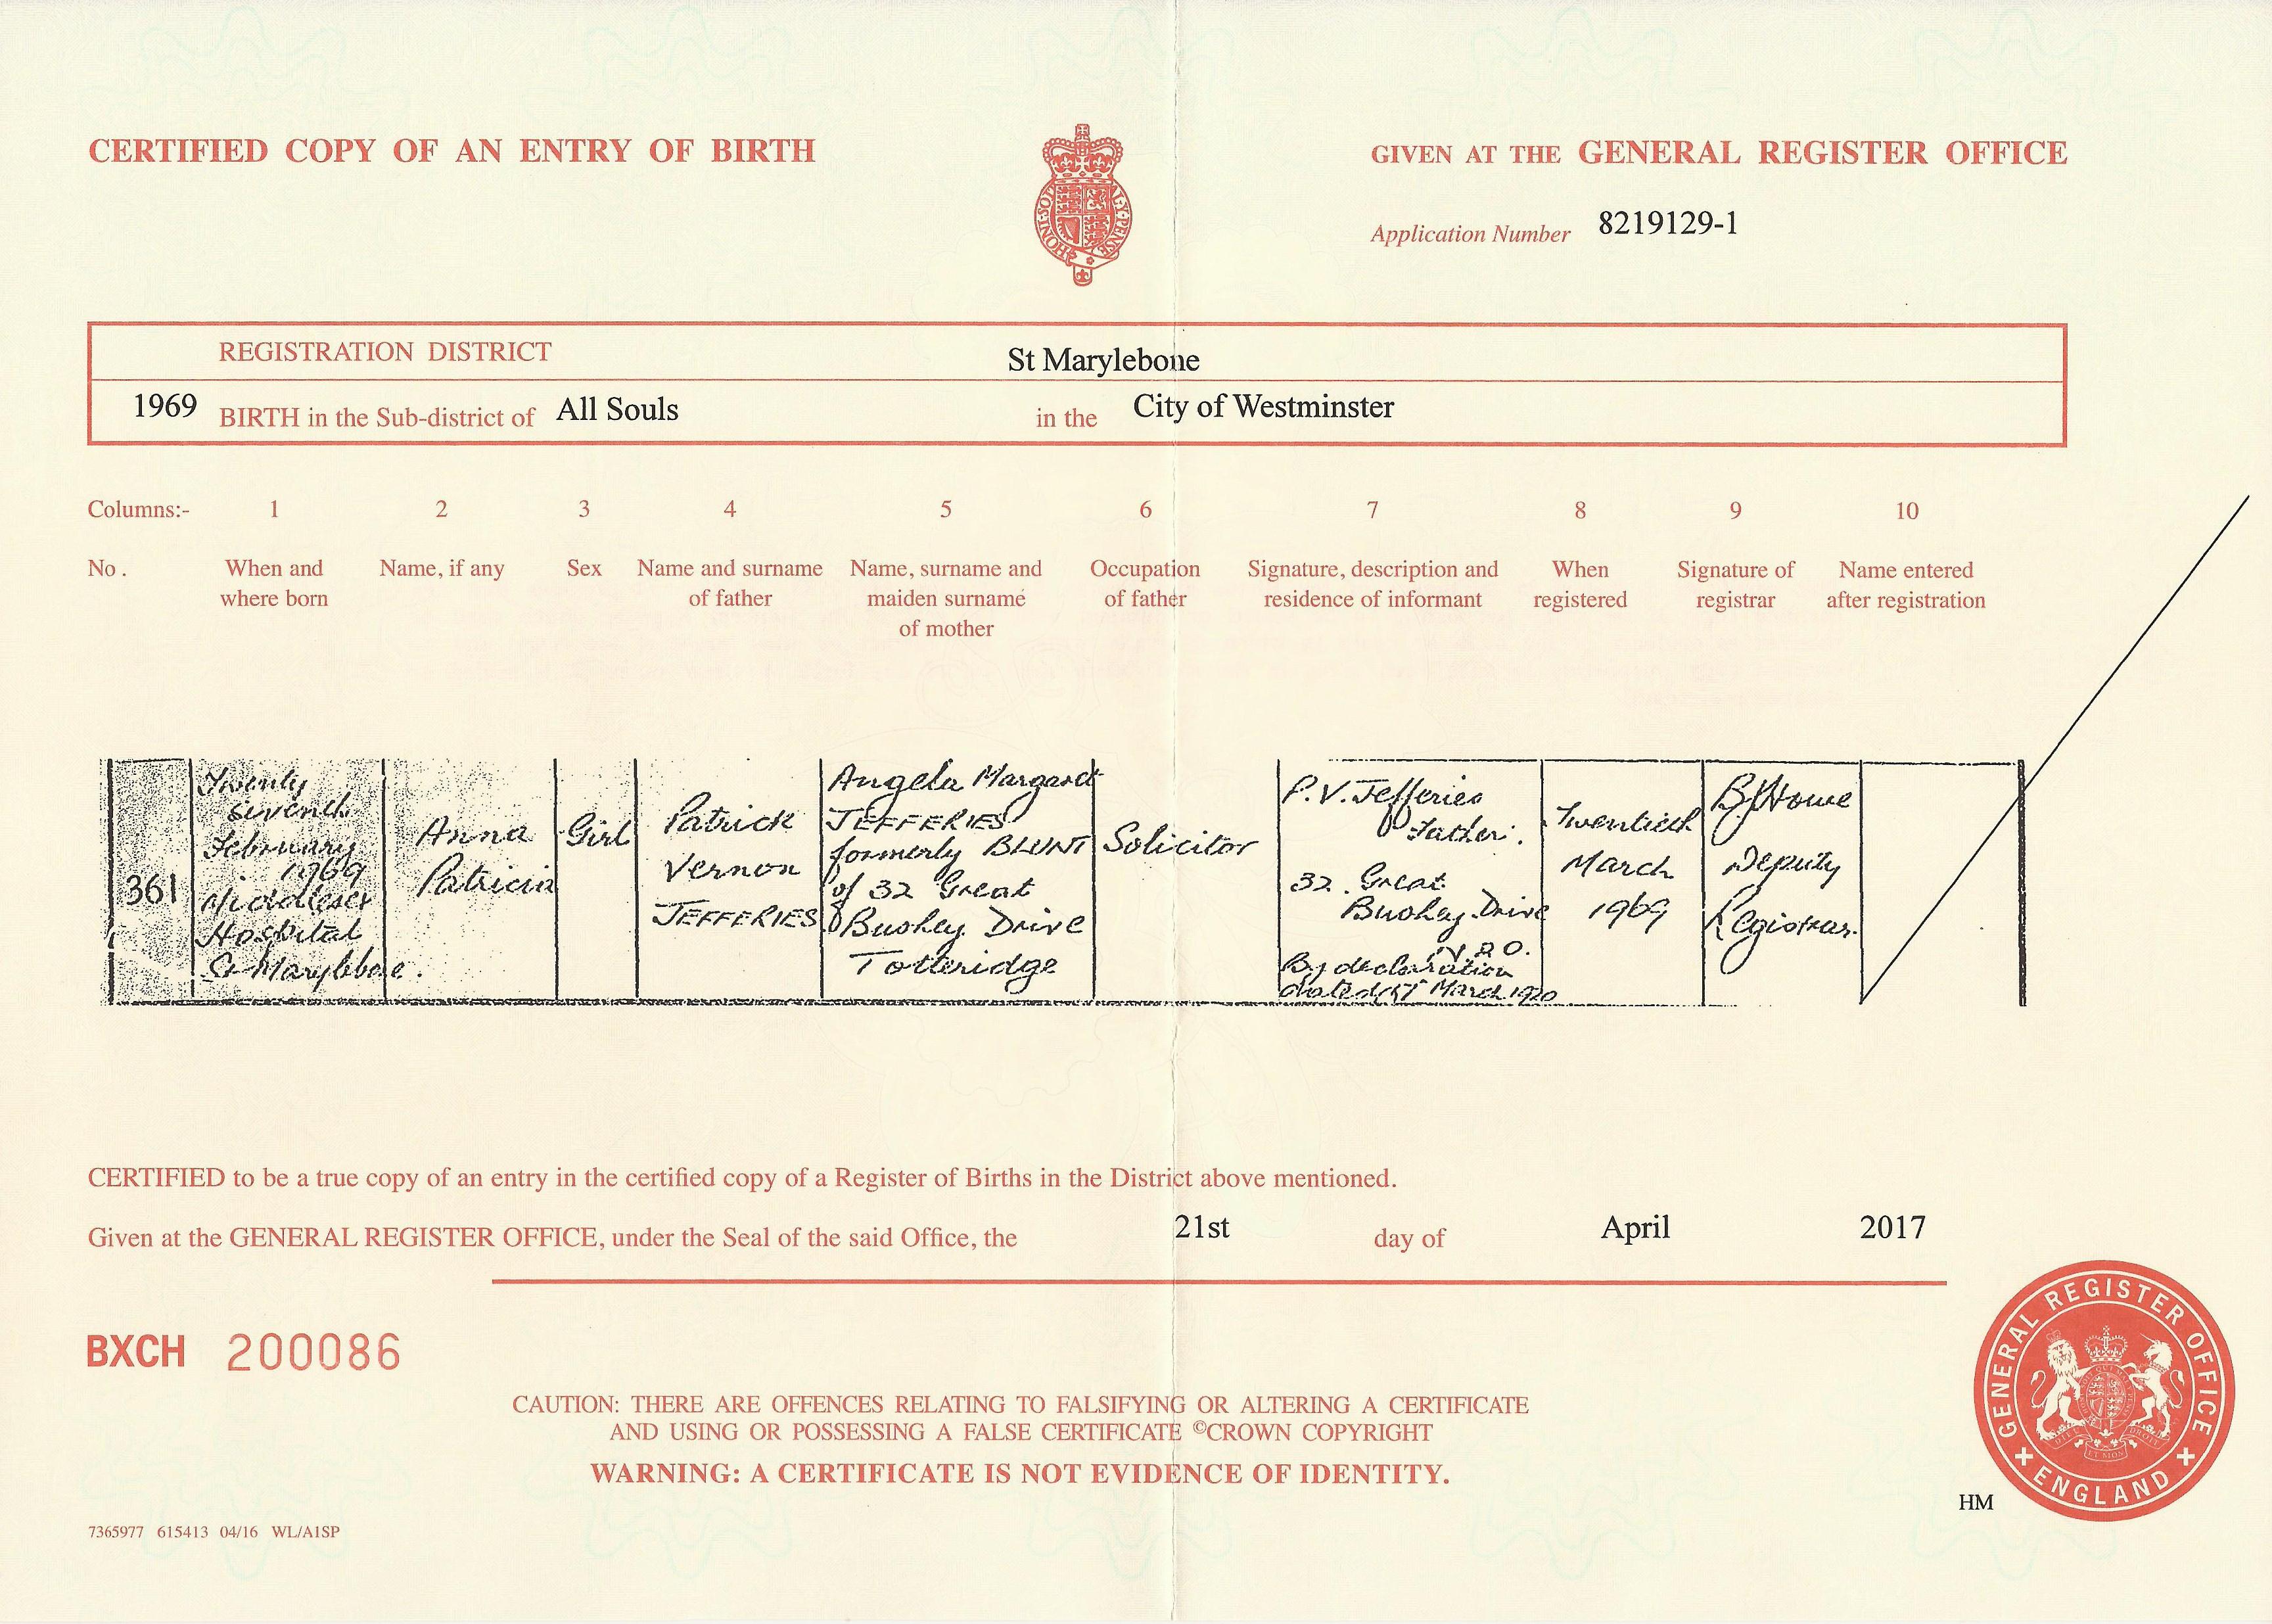 CERTIFIED COPY OF AN ENTRY OF BIRTH
GIVEN AT THE GENERAL REGISTER OFFICE
Application Number 8219129-1
REGISTRATION DISTRICT St Marylebone
1969 BIRTH in the Sub-district of All Souls in the City of Westminster
Columns:- 1 2 3 4 5 6 7 8 9 10
No. When and where born Name, if any Sex Name and surname of father Name, surname and maiden surname of mother Occupation of father Signature, description and residence of informant When registered Signature of registrar Name entered after registration
361
Twenty
seventh
February
1969
Middlesex
Hospital
St Marylebone.
Anna
Patricia
Girl
Patrick
Vernon
JEFFERIES
Angela Margaret
JEFFERIES
formerly BLUNT
of 32 Great
Bushey Drive
Totteridge
Solicitor
P.V. Jefferies
Father.
32. Great
Bushey Drive
N.20.
By declaration
dated March
Twentieth
March
1969
Howe
Deputy
Registrar.
CERTIFIED to be a true copy of an entry in the certified copy of a Register of Births in the District above mentioned.
Given at the GENERAL REGISTER OFFICE, under the Seal of the said Office, the 21st day of April 2017
BXCH 200086
CAUTION: THERE ARE OFFENCES RELATING TO FALSIFYING OR ALTERING A CERTIFICATE
AND USING OR POSSESSING A FALSE CERTIFICATE ©CROWN COPYRIGHT
WARNING: A CERTIFICATE IS NOT EVIDENCE OF IDENTITY.
GENERAL REGISTER OFFICE
ENGLAND
HM
7365977 615413 04/16 WL/A1SP